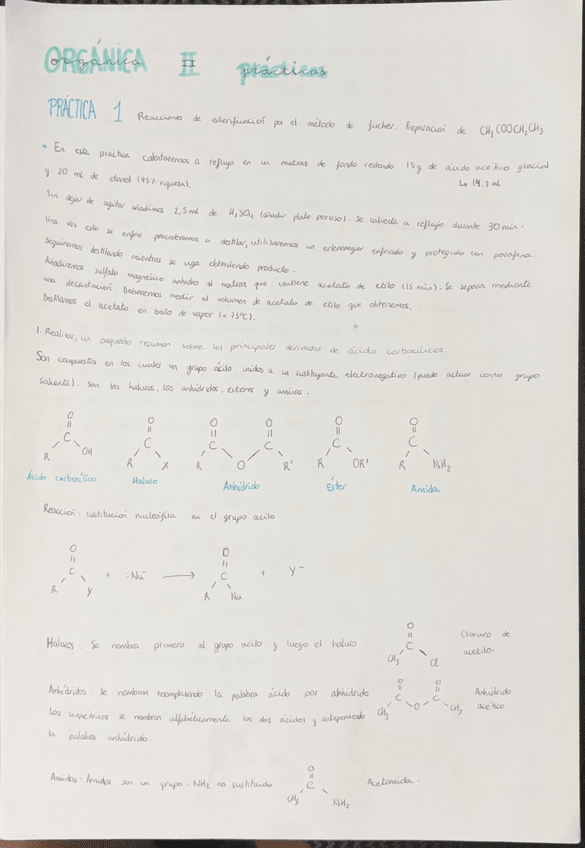 ORGÁNICA II prácticas
PRÁCTICA 1 Reacciones de esterificación por el método de fischer. Preparación de CH3COOCH2CH3
• En esta práctica calentaremos a reflujo en un matraz de fondo redondo 15g de ácido acético glacial
↳ 14.3 ml
y 20 ml de etanol (95% riqueza).
Sin dejar de agitar añadimos 2,5 ml de H2SO4 (añadir plato poroso). Se calienta a reflujo durante 30 min.
Una vez esto se enfríe procederemos a destilar, utilizaremos un erlenmeyer enfriado y protegido con parafina.
Seguiremos destilando mientras se siga obteniendo producto.
Añadiremos sulfato magnésico anhidro al matraz que contiene acetato de etilo (15 min). Se separa mediante
una decantación. Deberemos medir el volumen de acetato de etilo que obtenemos.
Destilamos el acetato en baño de vapor (< 75ºC).
1. Realizar, un pequeño resumen sobre los principales derivados de ácidos carboxílicos.
Son compuestos en los cuales un grupo ácilo unidos a un sustituyente electronegativo (puede actuar como grupo
saliente). Son los haluros, los anhídridos, esteres y amidas.
O O O O O O
C C C C C C
R OH R X R O R' R OR' R NH2
Ácido carboxílico Haluro Anhídrido Éster Amida
Reacción: sustitución nucleófila en el grupo acilo
O O
C + :Nu⁻ ⟶ C + Y⁻
R Y R Nu
Haluros: Se nombra primero al grupo acilo y luego el haluro
O
C
CH3 Cl
Cloruro de
acetilo.
Anhídridos: Se nombran reemplazando la palabra ácido por anhídrido
Los simétricos se nombran alfabéticamente los dos ácidos y anteponiendo
la palabra anhídrido
O O
C C
CH3 O CH3
Anhídrido
acético
Amidas. Amidas son un grupo -NH2 no sustituido
O
C
CH3 NH2
Acetamida.